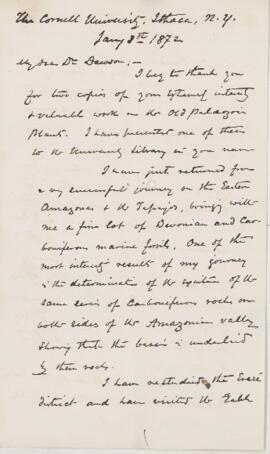 The Cornell University, Ithaca, N.Y.
Jany 8th 1872
My dear Dr. Dawson,—
I beg to thank you
for two copies of your extremely interesting
& valuable work on the Old Palæozoic
Plants. I have presented one of them
to the University Library in your name
I have just returned from
a very successful journey on the Eastern
Amazonas & the Tapajos, bringing with
me a fine lot of Devonian and Car-
boniferous marine fossils. One of the
most interesting results of my journey
is the determination of the existence of the
same series of Carboniferous rocks on
both sides of the Amazonian valley
showing that the basin is underlaid
by these rocks.
I have restudied the Ereré
district and have visited the table